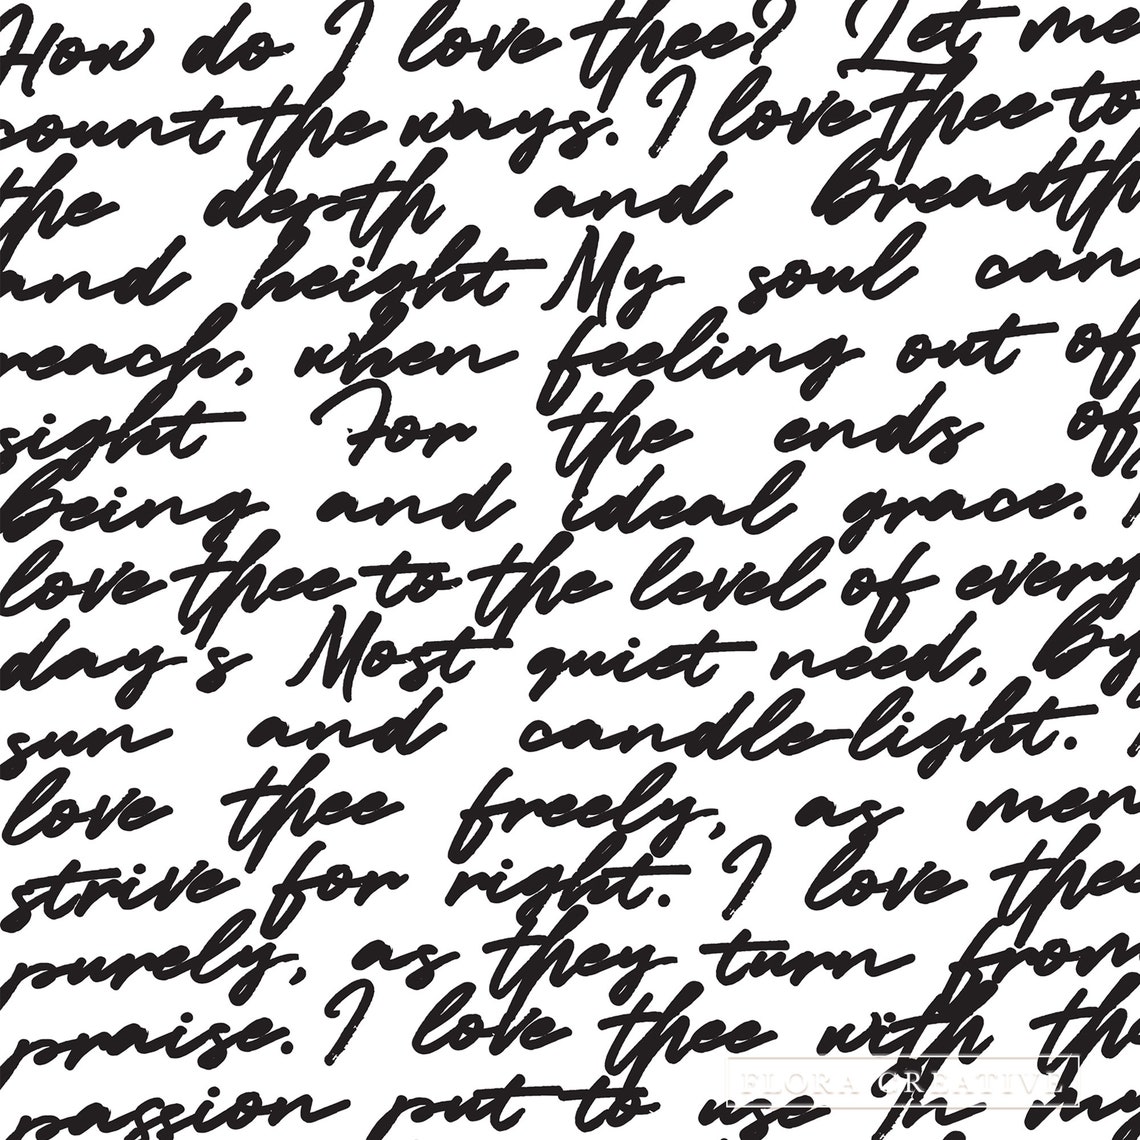 How do I love thee? Let me
count the ways. I love thee to
the depth and breadth
and height My soul can
reach, when feeling out of
sight For the ends of
being and ideal grace. I
love thee to the level of every
day's Most quiet need, By
sun and candle-light. I
love thee freely, as men
strive for right. I love thee
purely, as they turn from
praise. I love thee with the
passion put to use In my
FLORA CREATIVE